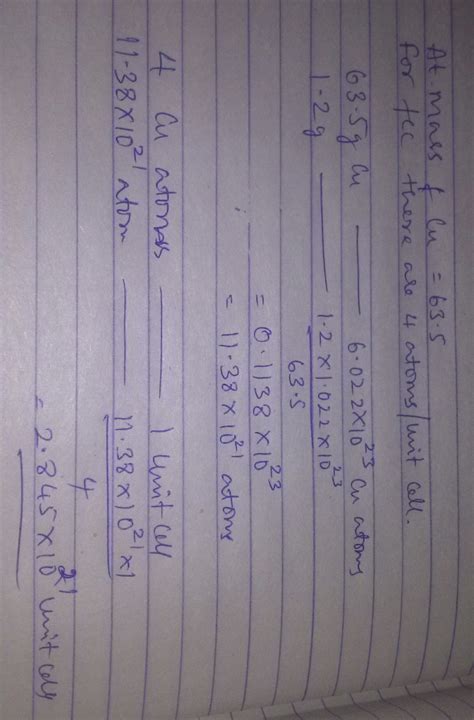 At mass of Cu = 63.5
For fcc there are 4 atoms/unit cell.
63.5g Cu — 6.022×10²³ Cu atoms
1.2g — 1.2×1.022×10²³
63.5
= 0.1138×10²³
= 11.38×10²¹ atoms
4 Cu atoms — 1 unit cell
11.38×10²¹ atom — 11.38×10²¹×1
4
= 2.845×10²¹ unit cells